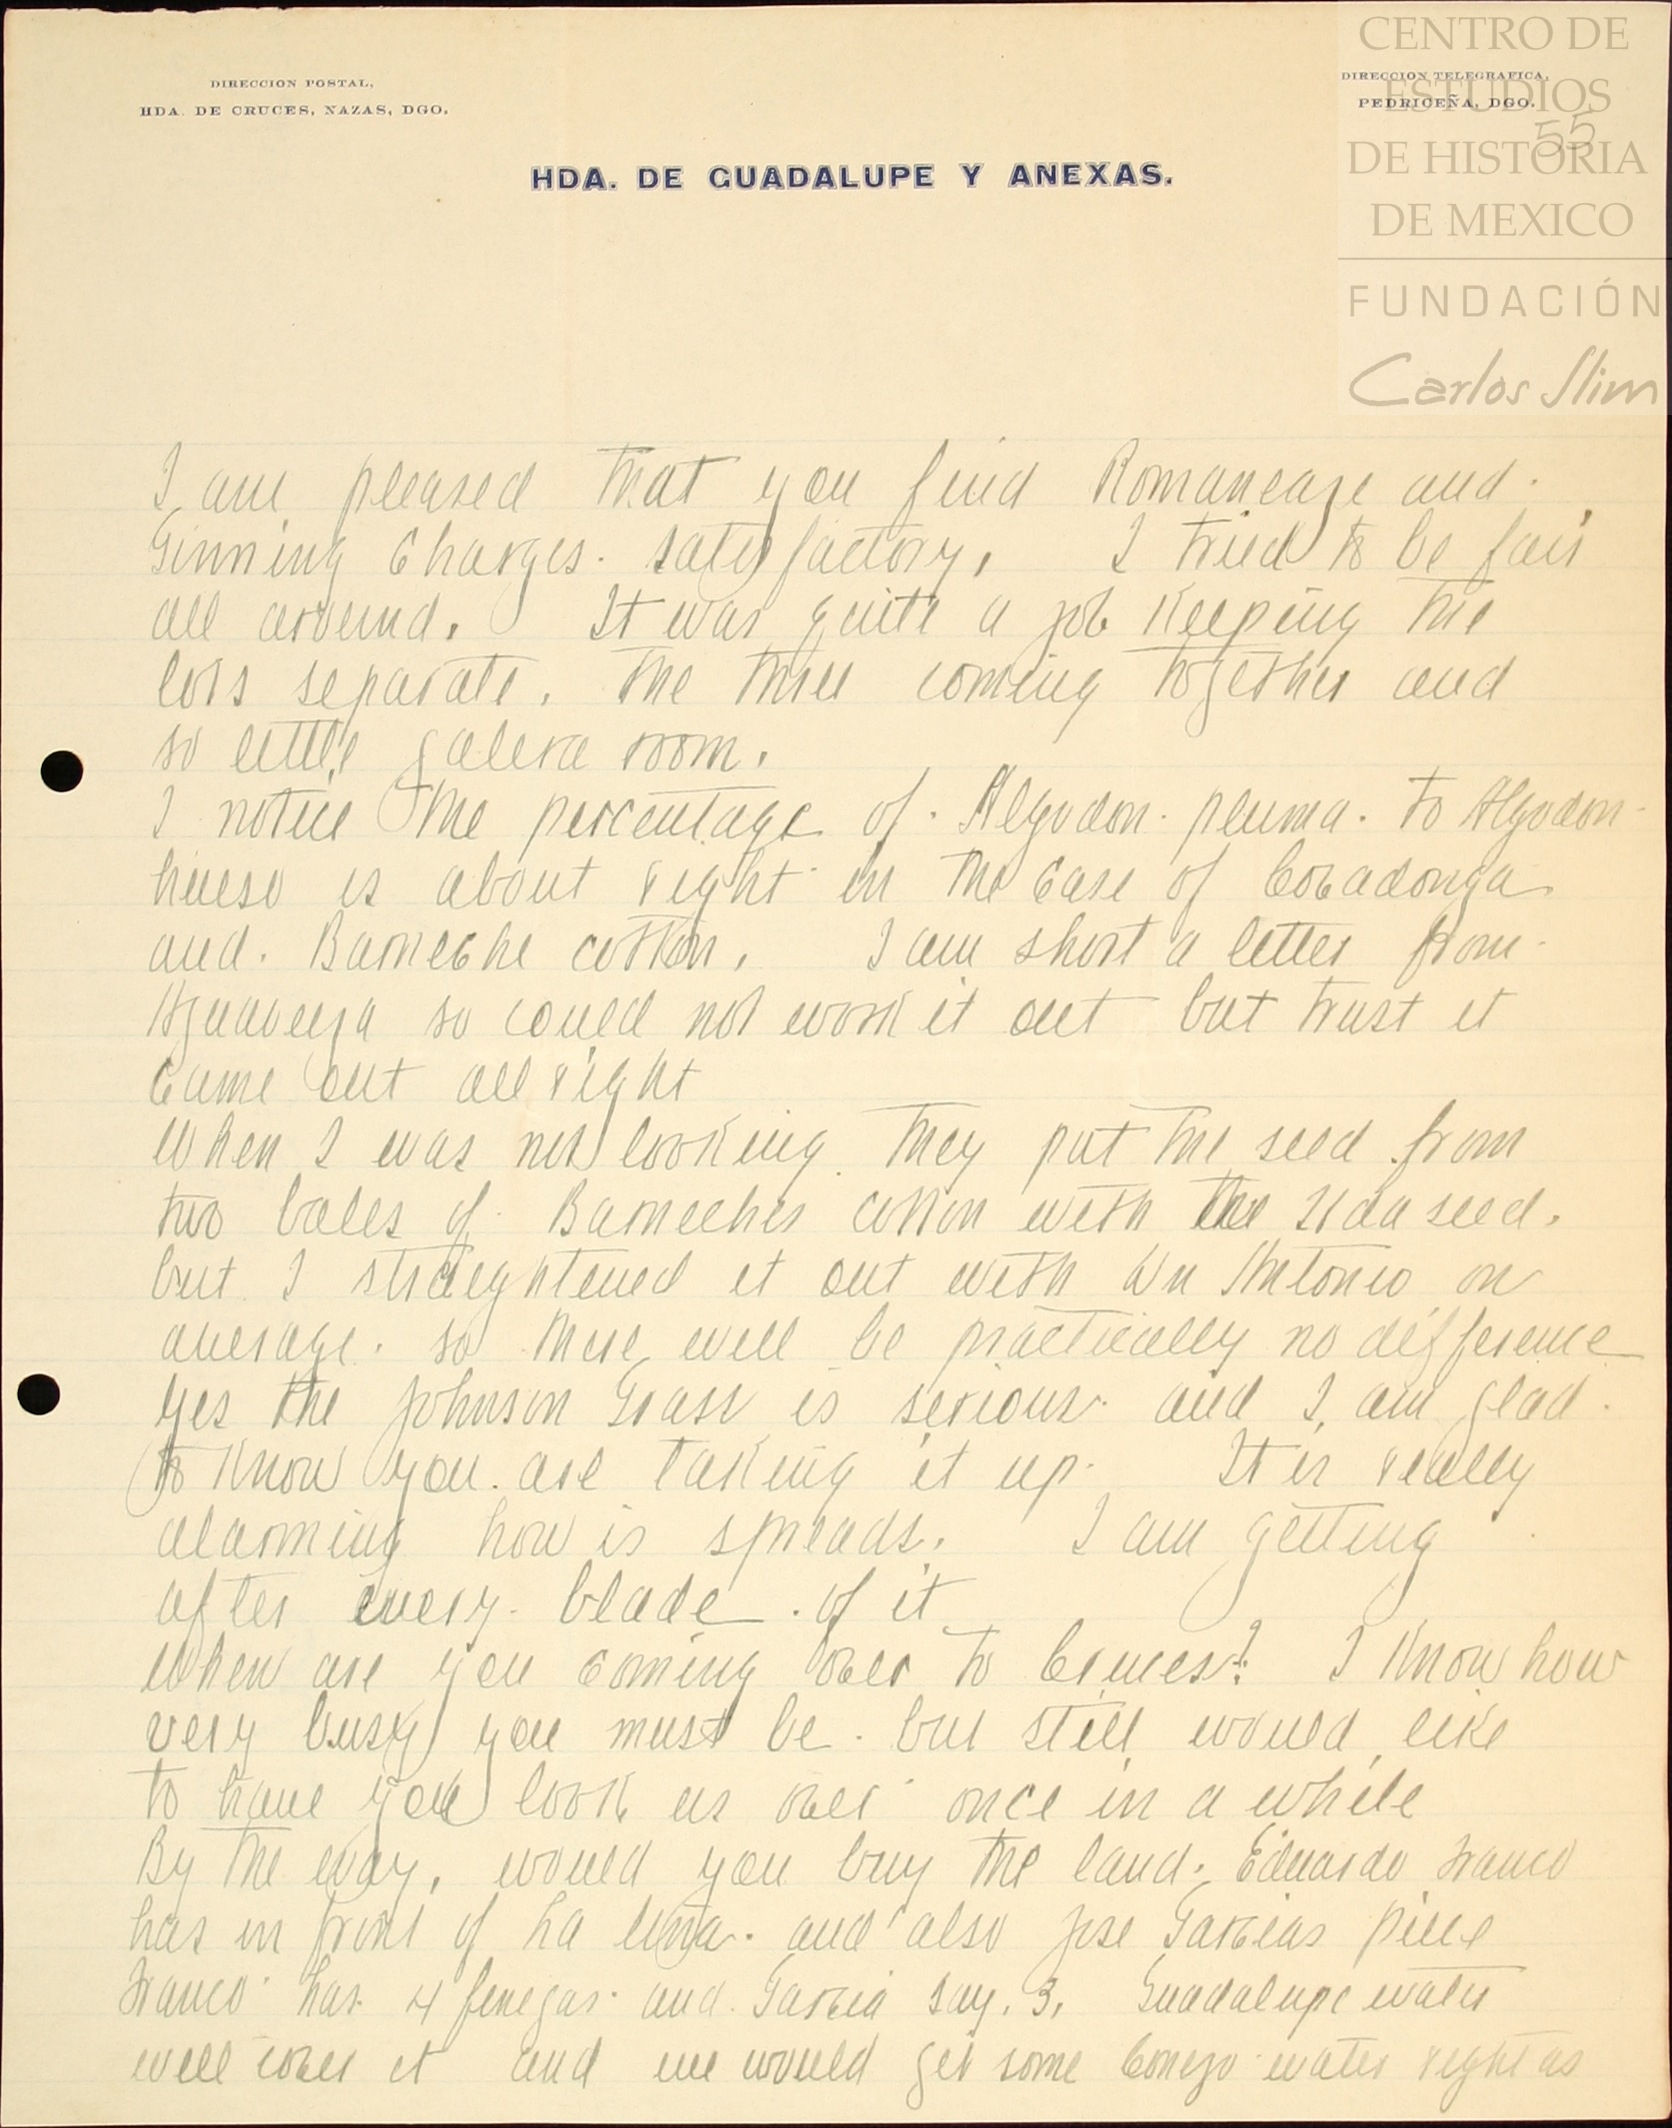 DIRECCION POSTAL,
HDA. DE CRUCES, NAZAS, DGO.
DIRECCION TELEGRAFICA,
PEDRICEÑA, DGO.
CENTRO DE
ESTUDIOS
DE HISTORIA
DE MEXICO
FUNDACIÓN
Carlos Slim
55
HDA. DE GUADALUPE Y ANEXAS.
I am pleased that you find and
Ginning Charges. satisfactory. I tried to be fair
all around. It was quite a job Keeping the
lots separate. The three coming together and
so little galera room.
I notice the percentage of. Algodon. pluma. to Algodon
hueso is about right in the case of Cobadonga
and. Barneche cotton. I am short a letter from
so could not work it out but trust it
came out all right
When I was not looking. They put the seed from
two bales of Barneches cotton with the Hda seed.
but I straightened it out with Dn Antonio on
average. so there will be practically no difference
Yes the Johnson Grass is serious and I am glad.
to Know you are taking it up. It is really
alarming how is spreads. I am getting
after every blade. of it
When are you coming over to Cruces? I Know how
very busy you must be. but still would like
to have you look us over once in a while
By the way, would you buy the land. Eduardo Franco
has in front of La and also Jose Garcias piece
Franco has 4 fenegas. and Garcia say. 3. Guadalupe water
will cover it and we would get some water right as